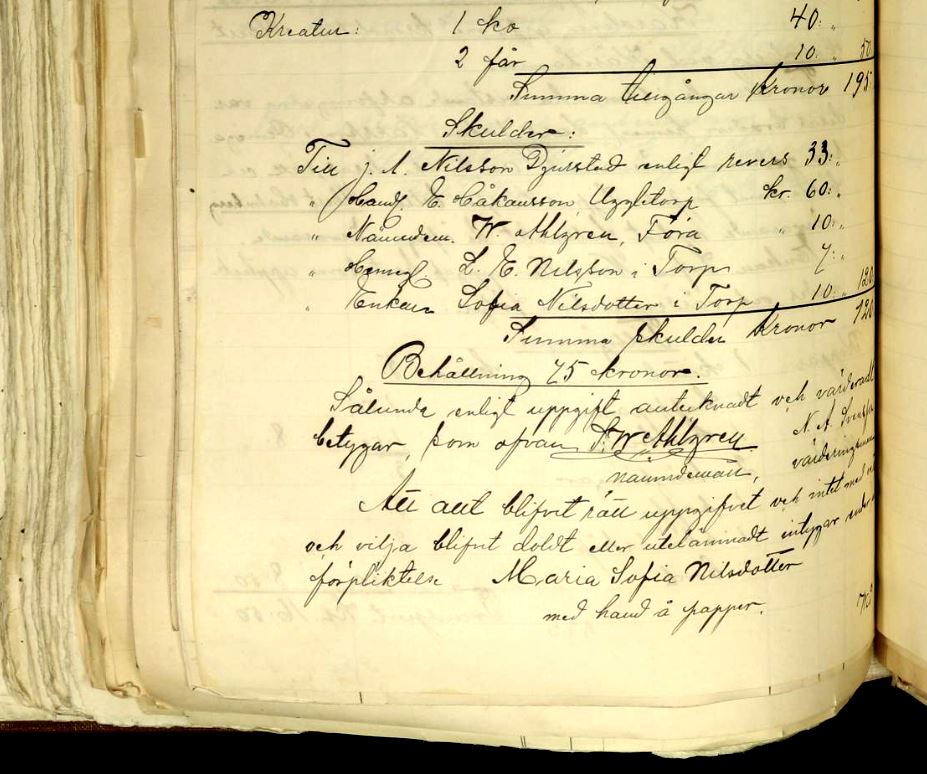 Kreatur: 1 ko 40: "
2 får 10: " 50
Summa tillgångar Kronor 195
Skulder:
Till J. A. Nilsson Djurstad enligt revers 33: "
" Handl. E. Håkansson, Uggletorp kr. 60: "
" Nämndem. W. Ahlgren, Föra " 10: "
" Hemeg. L. E. Nilsson i Torp 7: "
" Enkan Sofia Nilsdotter i Torp 10: " 120
Summa skulder Kronor 120
Behållning 75 kronor.
Sålunda enligt uppgift antecknadt och värderadt
betygar, som ofvan P. W Ahlgren N. A.
nämndeman, värderingsman
Att allt blifvit rätt uppgifvet och intet med
och vilja blifvit doldt eller utelämnadt intygar under
förpliktelse Maria Sofia Nilsdotter
med hand å papper.